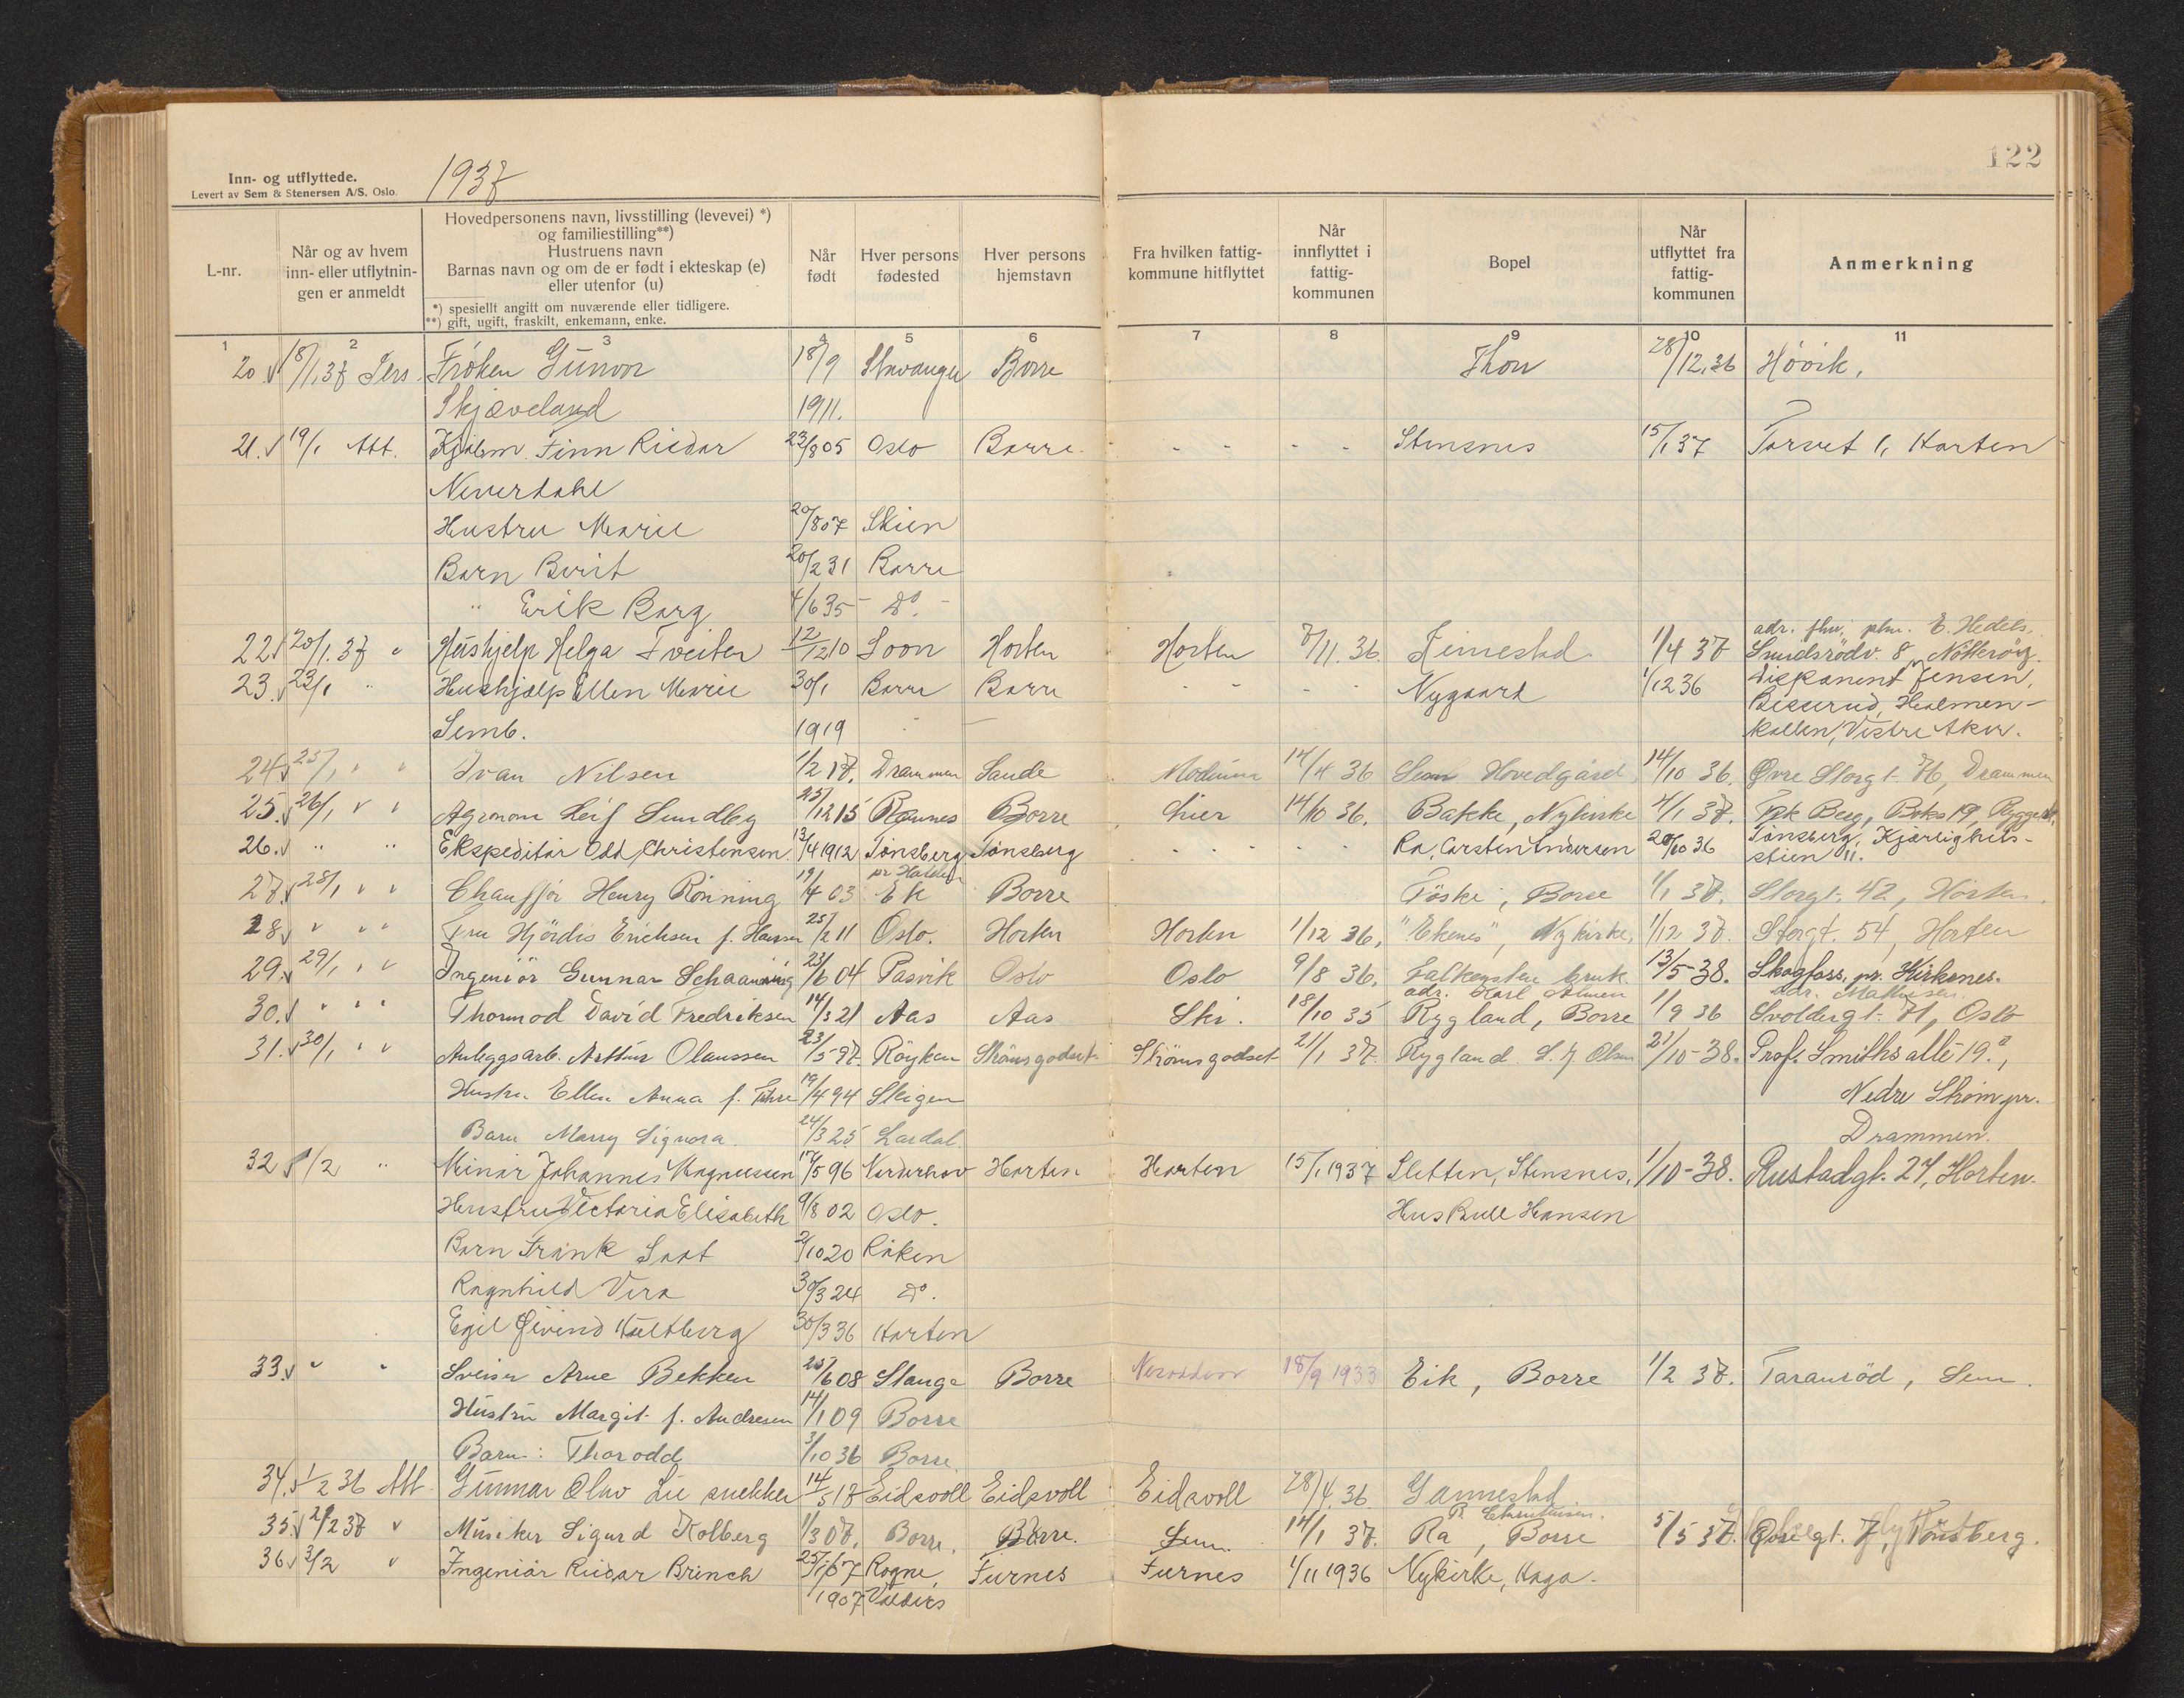 Inn- og utflyttede.
Levert av Sem & Stenersen A/S. Oslo.
1937
122
L-nr.
Når og av hvem
inn- eller utflytnin-
gen er anmeldt
Hovedpersonens navn, livsstilling (levevei) *)
og familiestilling**)
Hustruens navn
Barnas navn og om de er født i ekteskap (e)
eller utenfor (u)
*) spesiellt angitt om nuværende eller tidligere.
**) gift, ugift, fraskilt, enkemann, enke.
Når
født
Hver persons
fødested
Hver persons
hjemstavn
Fra hvilken fattig-
kommune hitflyttet
Når
innflyttet i
fattig-
kommunen
Bopel
Når
utflyttet fra
fattig-
kommunen
Anmerkning
1 2 3 4 5 6 7 8 9 10 11
20. 18/1.37 Frøken Gunvor 18/9 Stavanger Borre Thon 28/12.36 Høvik.
Skjæveland 1911.
21. 19/1 Att. Finn Reidar 23/8 05 Oslo Borre - - - - Stensnes 15/1 37 Torvet 1, Horten
Neverdahl
Hustru Marie 20/8 07 Skien
Barn Berit 20/2 31 Borre
" Erik Borg 4/6 35 - Do. -
22. 20/1.37 " Hushjelp Helga Tveiten 12/12 10 Soon Horten Horten 7/11.36. 1/4 37 adr. E. Hedels,
Smidsrødv. 8, Nøtterøy.
23. 23/1 " Hushjælp Ellen Marie 30/1 Borre Borre - - - - Nygaard 1/12 36 Disponent Jensen,
Semb. 1919 Besserud, Holmen-
kollen, Vestre Aker.
24. 25/1 " " Ivan Nilsen 1/2 17. Drammen Sande Modum 14/4 36 Sem Hovedgård, 14/10 36. Øvre Storgt. 76, Drammen
25. 26/1 " " Agronom Leif Sundby 25/12 15 Ramnes Borre Lier 14/10 36. Bakke, Nykirke 4/1 37. Berg, Boks 19,
26. " " Ekspeditør Odd Christensen 13/4 1912 Tønsberg Tønsberg - - - - - Ra, Carsten Andersen 20/10 36 Tønsberg, Kjærlighets-
stien 11.
27. 28/1 " " Chauffør Henry Rønning 19/4 03 pr Halden Ek Borre Føske, Borre 1/1 37. Storgt. 42, Horten.
28. " " " Fru Hjördis Erichsen f. Hansen 25/2 11 Oslo. Horten Horten 1/12 36, "Ekenes", Nykirke, 1/12 37. Storgt. 54, Horten
29. 29/1, " " Ingeniør Gunnar Schaanning 23/6 04 Pasvik Oslo Oslo 9/8 36. Falkensten bruk. 13/5-38. Skogfoss, pr. Kirkenes.
30. " " " Thormod David Fredriksen 14/3 21 Aas Aas Ski. 18/10 35 adr. Karl Rygland, Borre 1/9 36 adr. Mathisen.
Svoldergt. 71, Oslo
31. 30/1, " " Anleggsarb. Arthur Olaussen 23/5 97. Röyken Strömsgodset Strömsgodset 21/1 37. Rygland. Olsen 21/10-38. Prof. Smiths allé 19.,
Hustru Ellen Anna f. 19/4 94 Steigen Nedre Strøm pr.
Barn Marry Signora. 24/3 25 Lardal Drammen.
32 1/2 " Minør Johannes Magnussen 17/5 96 Norderhov Horten Horten 15/1 1937 Sletten, Stensnes, 1/10-38. Rustadgt. 27, Horten.
Hustru Victoria Elisabeth 9/8 02 Oslo. Hus Bull Hansen
Barn Frank 2/10 20 Røken
Ragnhild Vera 30/3 24 Do.
Egil Øivind Hultberg 30/3 36 Horten
33. " " Sveiser Arne Bekken 25/6 08 Stange Borre 18/9 1933 Eik, Borre 1/2 37. Taranröd, Sem.
Hustru Margit f. Andresen 14/1 09 Borre
Barn: Thorodd 3/10 36 Borre.
34. 1/2 36 Att. Gunnar Olav Lie snekker 14/5 17 Eidsvoll Eidsvoll Eidsvoll 28/4.36. Gannestad
35. 2/2 37 " Musiker Sigurd Kolberg 1/3 07. Borre. Borre. Sem. 14/1 37. R. Christensen. Ra, Borre 5/5 37. Tønsberg.
36 3/2 " Ingeniør Reidar Brinch 1907 Rogne, Valdres Furnes Furnes 1/11 1936 Nykirke, Haga.